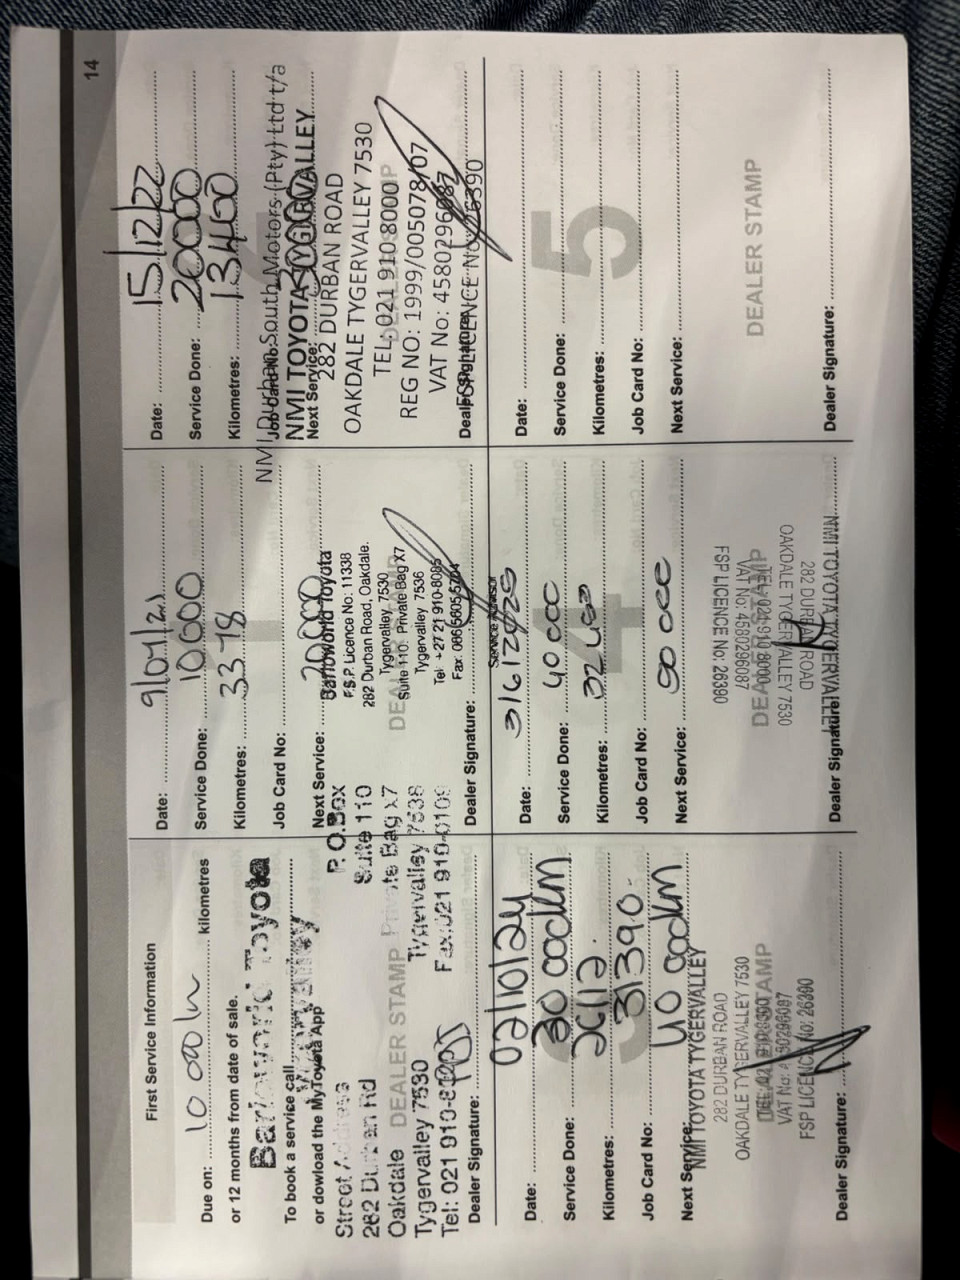 14
First Service Information
Due on: 10 000 km kilometres
or 12 months from date of sale.
To book a service call
or dowload the MyToyota App
Barloworld Toyota
Tygervalley
Street Address
282 Durban Rd
Oakdale
Tygervalley 7530
Tel: 021 910-8
P.O.Box
Suite 110
Private Bag x7
Tygervalley 7536
Fax:021 910-0109
DEALER STAMP
Dealer Signature:
Date: 9/04/21
Service Done: 10000
Kilometres: 3378
Job Card No:
Next Service: 20000
Barloworld Toyota
F.S.P. Licence No: 11338
282 Durban Road, Oakdale.
Tygervalley 7530
Suite 110: Private Bag X7
Tygervalley 7536
Tel: +27 21 910-8085
Fax: 086 5605 5704
DEALER STAMP
Dealer Signature:
Service Advisor
Date: 15/12/22
Service Done: 20000
Kilometres: 13400
Job Card No:
Next Service: 30000
NMI Durban South Motors (Pty) Ltd t/a
NMI TOYOTA TYGERVALLEY
282 DURBAN ROAD
OAKDALE TYGERVALLEY 7530
TEL: 021 910 8000
REG NO: 1999/005078/07
VAT No: 4580296087
FSP LICENCE No: 26390
DEALER STAMP
Dealer Signature:
3
Date: 02/10/24
Service Done: 30 000km
Kilometres: 26112.
Job Card No: 31390.
Next Service: 40 000km
NMI TOYOTA TYGERVALLEY
282 DURBAN ROAD
OAKDALE TYGERVALLEY 7530
VAT No: 4580296087
FSP LICENCE No: 26390
DEALER STAMP
Dealer Signature:
4
Date: 3/6/2025
Service Done: 40 000
Kilometres:
Job Card No:
Next Service: 50 000
NMI TOYOTA TYGERVALLEY
282 DURBAN ROAD
OAKDALE TYGERVALLEY 7530
TEL: 021 910 8000
VAT No: 4580296087
FSP LICENCE No: 26390
DEALER STAMP
Dealer Signature:
5
Date:
Service Done:
Kilometres:
Job Card No:
Next Service:
DEALER STAMP
Dealer Signature: